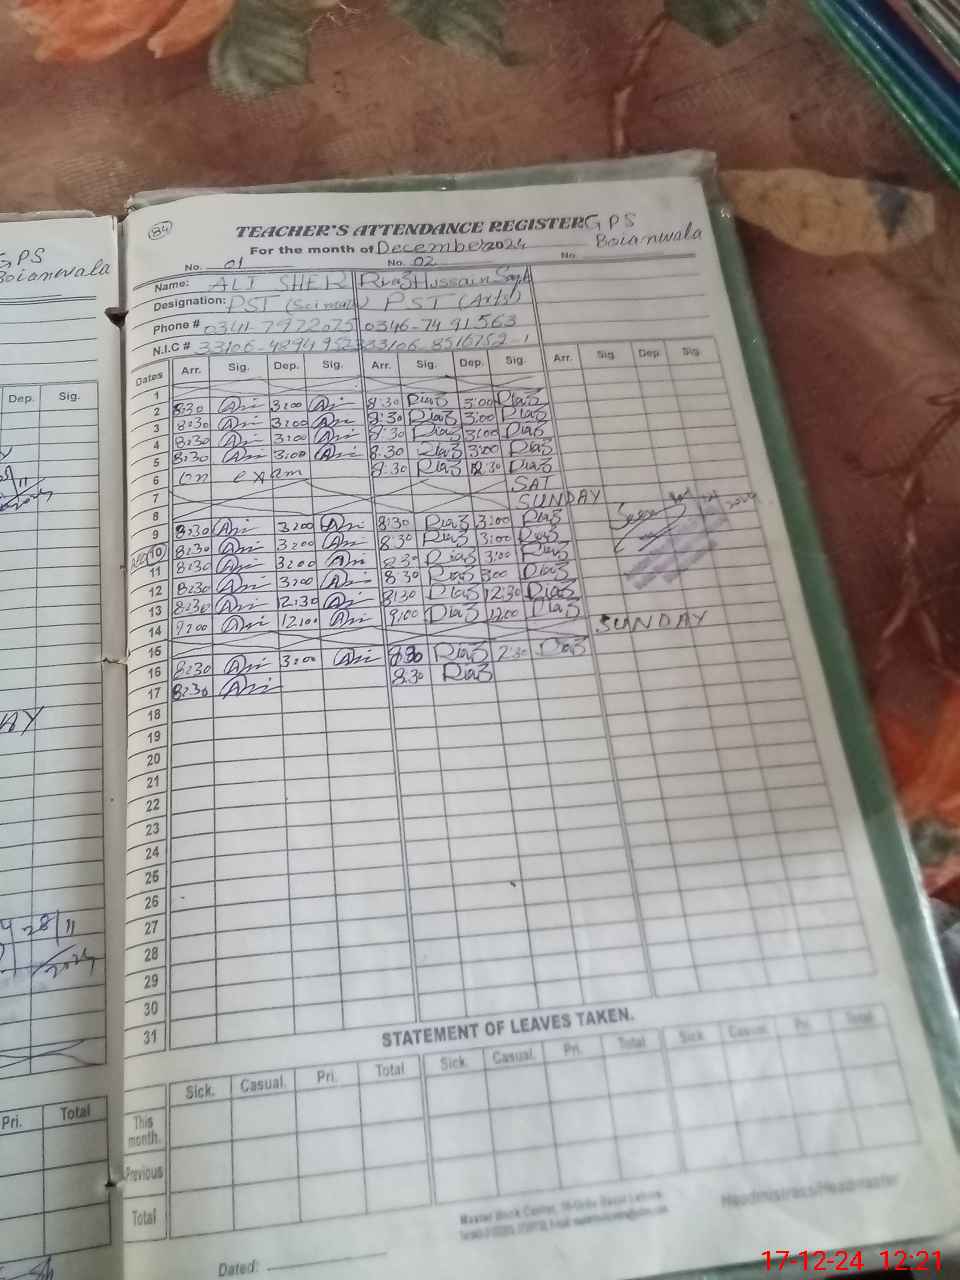 GPS
Boianwala
Dep.
Sig.
28 11
2024
Pri.
Total
84
TEACHER'S ATTENDANCE REGISTER GPS
For the month of December 2024 Boianwala
No. 01 No. 02 No.
Name: ALI SHER Riaz Hussain
Designation: PST PST (Arts)
Phone # 0341-7972075 0346-7491563
N.I.C # 33106-8516752-1
Dates Arr. Sig. Dep. Sig. Arr. Sig. Dep. Sig. Arr. Sig. Dep. Sig.
1
2 8:30 Ali 3:00 Ali 8:30 Riaz 3:00 Riaz
3 8:30 Ali 3:00 Ali 8:30 Riaz 3:00 Riaz
4 8:30 Ali 3:00 Ali 8:30 Riaz 3:00 Riaz
5 8:30 Ali 3:00 Ali 8:30 Riaz 3:00 Riaz
6 on exam 8:30 Riaz 12:30 Riaz
7 SAT
8 SUNDAY
9 8:30 Ali 3:00 Ali 8:30 Riaz 3:00 Riaz
10 8:30 Ali 3:00 Ali 8:30 Riaz 3:00 Riaz
11 8:30 Ali 3:00 Ali 8:30 Riaz 3:00 Riaz
12 8:30 Ali 3:00 Ali 8:30 Riaz 3:00 Riaz
13 8:30 Ali 12:30 Ali 8:30 Riaz 12:30 Riaz
14 9:00 Ali 12:00 Ali 9:00 Riaz 12:00 Riaz
15 SUNDAY
16 8:30 Ali 3:00 Ali 8:30 Riaz 2:30 Riaz
17 8:30 Ali 8:30 Riaz
18
19
20
21
22
23
24
25
26
27
28
29
30
31
STATEMENT OF LEAVES TAKEN.
Sick. Casual. Pri. Total Sick. Casual. Pri. Total Sick. Casual. Pri. Total
This month.
Previous
Total
Headmistress/Headmaster
Dated:
17-12-24 12:21